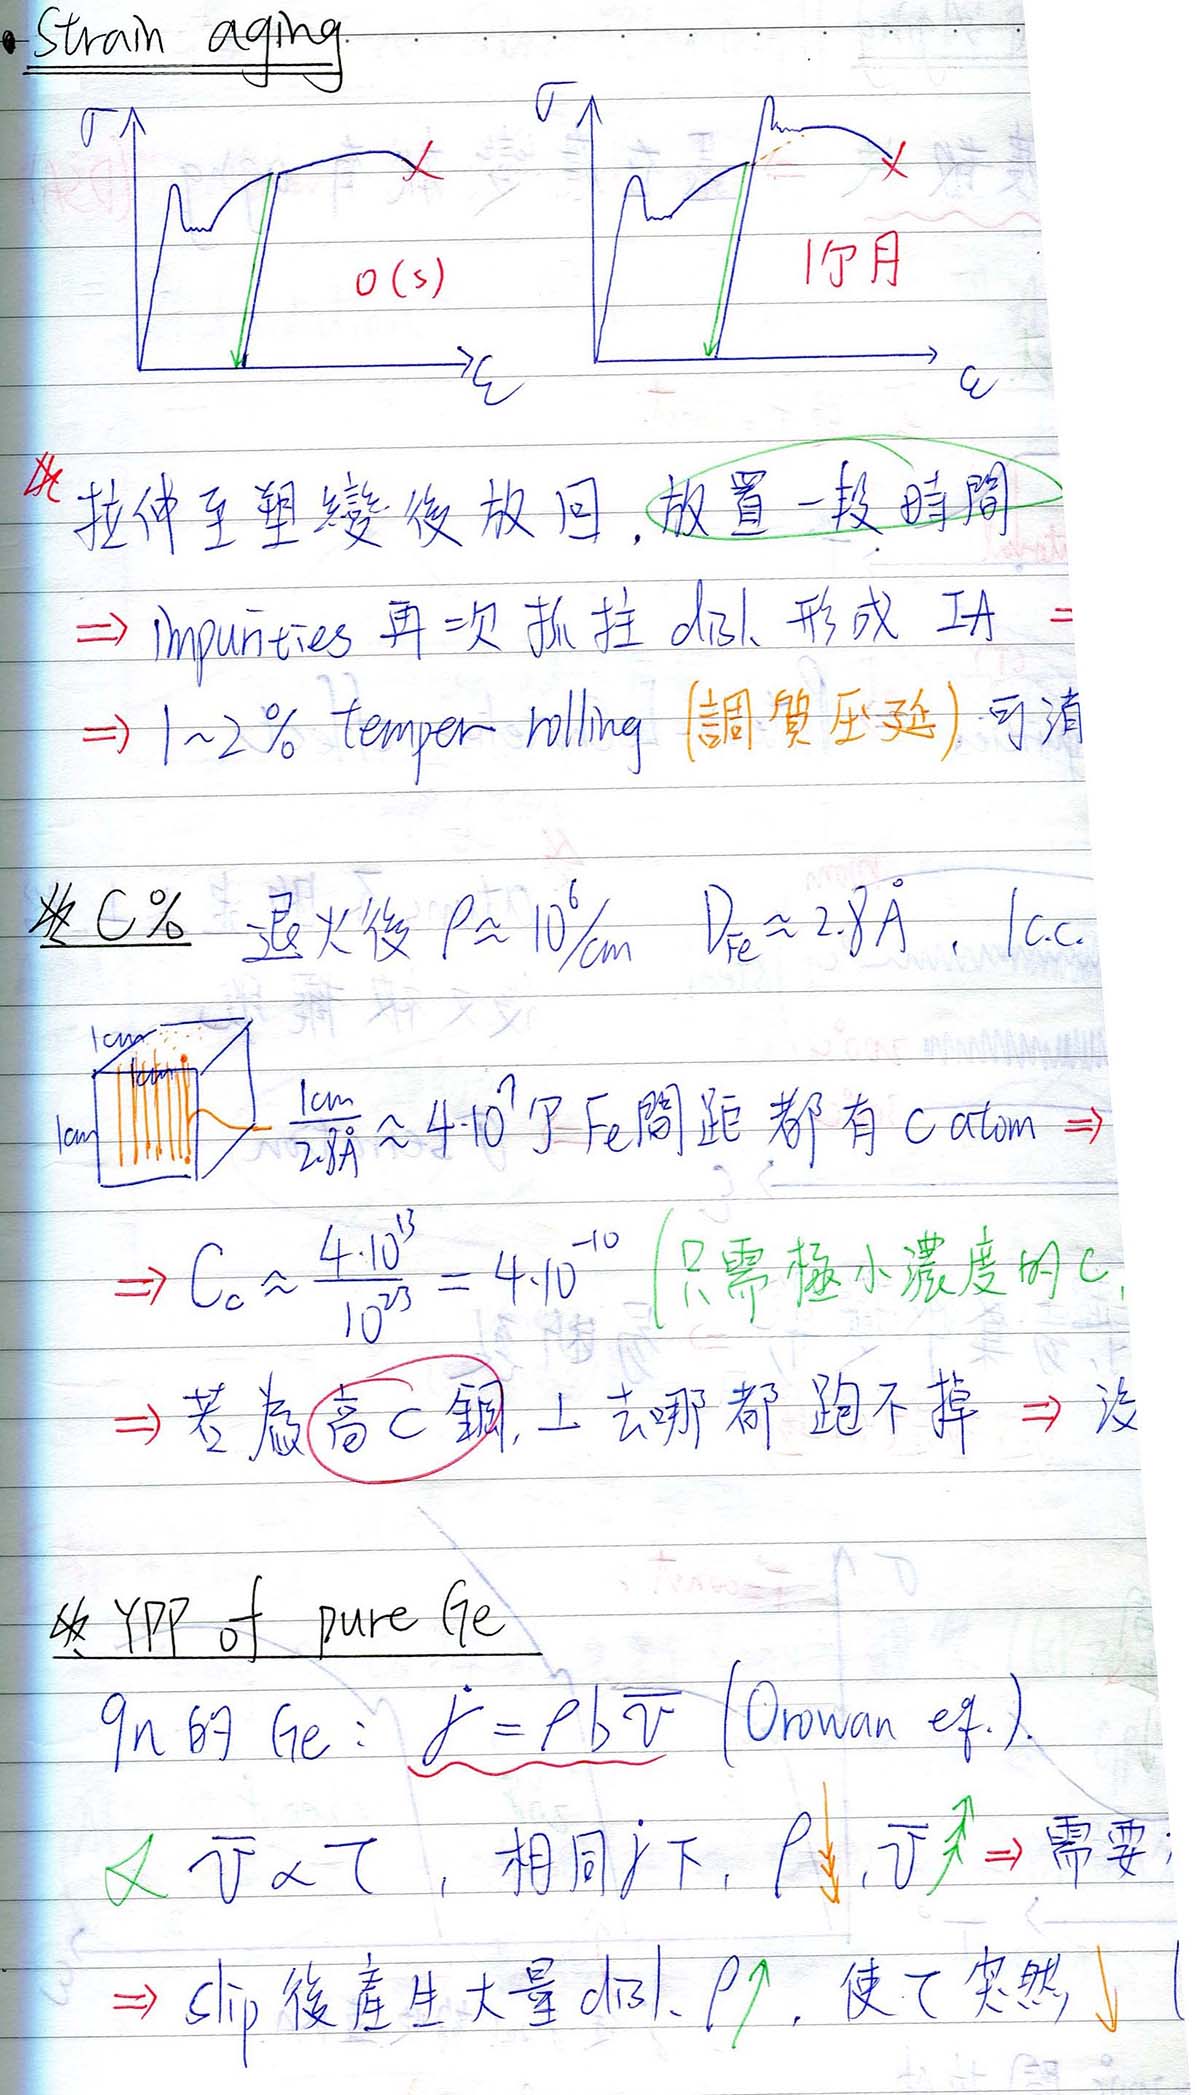 • Strain aging
σ σ
0 (s) 1个月
ε ε
※ 拉伸至塑變後放回,放置一段時間
⇒ impurities 再一次抓住 disl. 形成 IA =
⇒ 1~2% temper rolling (調質压延) 可消
※ C% 退火後 ρ ≈ 10⁶/cm D_Fe ≈ 2.8Å , 1 c.c.
1cm
1cm
1cm 1cm/2.8Å ≈ 4·10⁷ 个 Fe間距都有 C atom ⇒
⇒ C_c ≈ 4·10¹³/10²³ = 4·10⁻¹⁰ (只需極小濃度的 C,
⇒ 若為高C鋼, ⊥ 去哪都跑不掉 ⇒ 沒
※ YPP of pure Ge
9n 的 Ge : γ̇ = ρbv̄ (Orowan eq.).
∝ v̄ ∝ τ , 相同 γ̇ 下, ρ↓, v̄↑ ⇒ 需要
⇒ slip 後產生大量 disl. ρ↑, 使 τ 突然↓ (